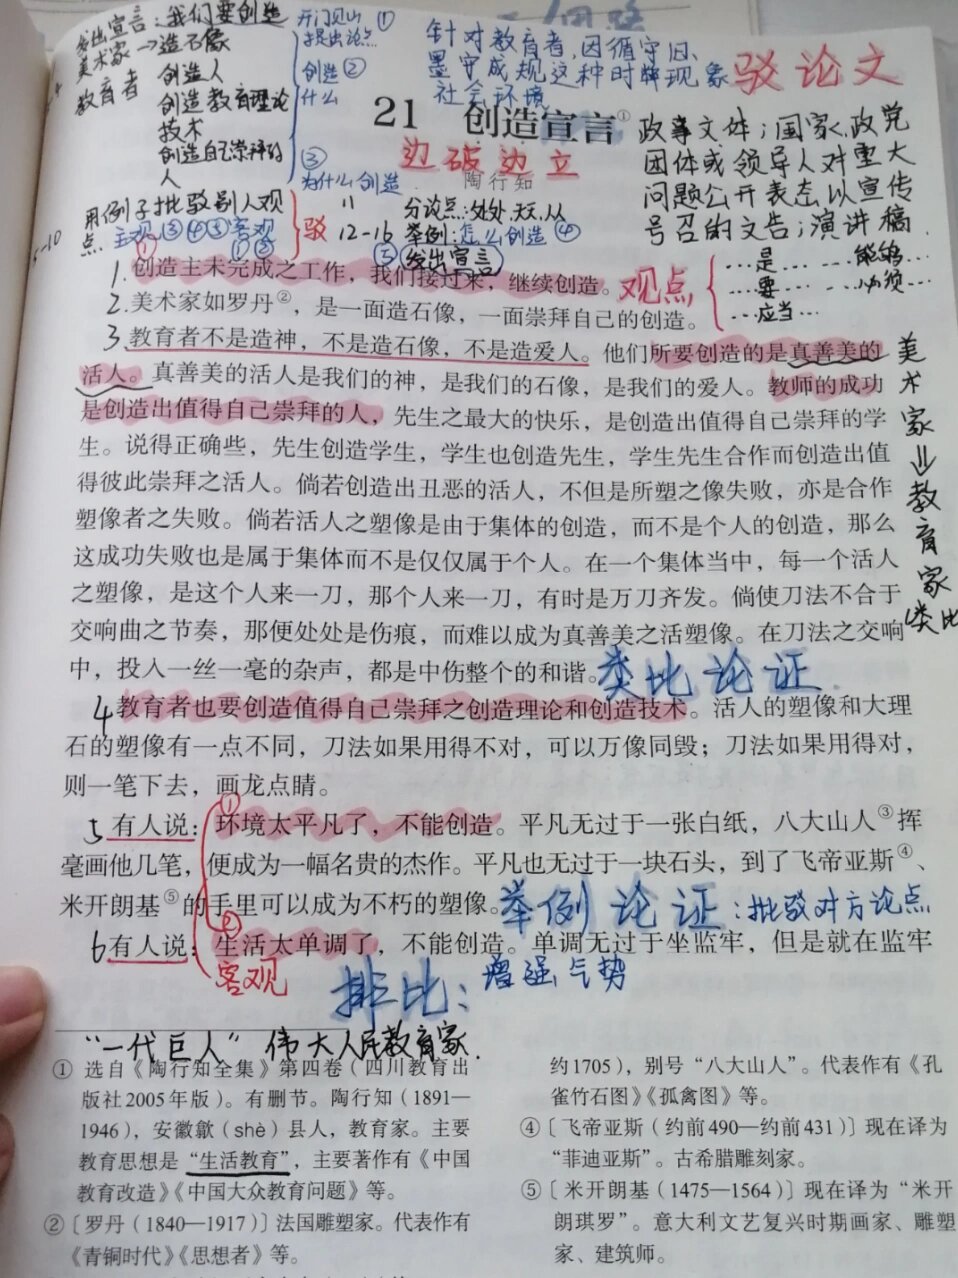 发出宣言：我们要创造
美术家→造石像
教育者 创造人
创造教育理论
技术
创造自己崇拜的
人
开门见山 ①
提出论点
创造 ②
什么
③
为什么创造
针对教育者,因循守旧、
墨守成规这种时弊现象
社会环境
驳论文
21 创造宣言①
边破边立
陶行知
政事文体；国家、政党
团体或领导人对重大
问题公开表态以宣传
号召的文告；演讲稿.
用例子批驳别人观
点 主观③④⑤客观
① ①②
5-10
驳
11 分论点:处处、天天、人
12-16 举例:怎么创造 ④
⑤ 发出宣言
1.创造主未完成之工作，我们接过来，继续创造。
观点
…是… …能够…
…要… …必须…
…应当…
2.美术家如罗丹②，是一面造石像，一面崇拜自己的创造。
3.教育者不是造神，不是造石像，不是造爱人。他们所要创造的是真善美的
活人。真善美的活人是我们的神，是我们的石像，是我们的爱人。教师的成功
是创造出值得自己崇拜的人，先生之最大的快乐，是创造出值得自己崇拜的学
生。说得正确些，先生创造学生，学生也创造先生，学生先生合作而创造出值
得彼此崇拜之活人。倘若创造出丑恶的活人，不但是所塑之像失败，亦是合作
塑像者之失败。倘若活人之塑像是由于集体的创造，而不是个人的创造，那么
这成功失败也是属于集体而不是仅仅属于个人。在一个集体当中，每一个活人
之塑像，是这个人来一刀，那个人来一刀，有时是万刀齐发。倘使刀法不合于
交响曲之节奏，那便处处是伤痕，而难以成为真善美之活塑像。在刀法之交响
中，投入一丝一毫的杂声，都是中伤整个的和谐。
类比论证.
美术家⇒教育家
类比
4 教育者也要创造值得自己崇拜之创造理论和创造技术。活人的塑像和大理
石的塑像有一点不同，刀法如果用得不对，可以万像同毁；刀法如果用得对，
则一笔下去，画龙点睛。
①
5 有人说：环境太平凡了，不能创造。平凡无过于一张白纸，八大山人③挥
毫画他几笔，便成为一幅名贵的杰作。平凡也无过于一块石头，到了飞帝亚斯④、
米开朗基⑤的手里可以成为不朽的塑像。
举例论证:批驳对方论点
②
6 有人说：生活太单调了，不能创造。单调无过于坐监牢，但是就在监牢
客观
排比：增强气势
“一代巨人” 伟大人民教育家.
① 选自《陶行知全集》第四卷（四川教育出
版社2005年版）。有删节。陶行知（1891—
1946），安徽歙（shè）县人，教育家。主要
教育思想是“生活教育”，主要著作有《中国
教育改造》《中国大众教育问题》等。
②〔罗丹（1840—1917）〕法国雕塑家。代表作有
《青铜时代》《思想者》等。
约1705），别号“八大山人”。代表作有《孔
雀竹石图》《孤禽图》等。
④〔飞帝亚斯（约前490—约前431）〕现在译为
“菲迪亚斯”。古希腊雕刻家。
⑤〔米开朗基（1475—1564）〕现在译为“米开
朗琪罗”。意大利文艺复兴时期画家、雕塑
家、建筑师。